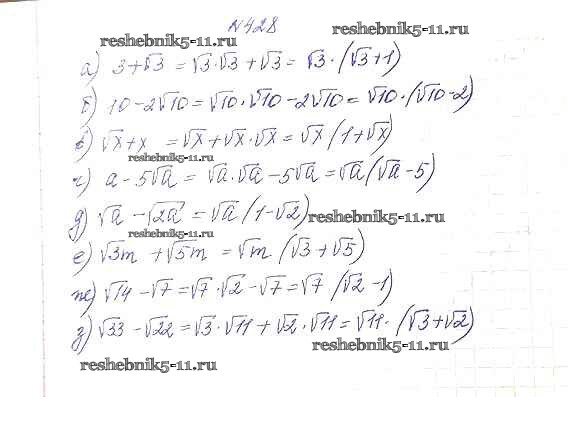 №428
reshebnik5-11.ru
reshebnik5-11.ru
а) 3+√3 = √3·√3+√3 = √3·(√3+1)
б) 10-2√10=√10·√10-2√10=√10·(√10-2)
в) √x+x = √x+√x·√x=√x(1+√x)
reshebnik5-11.ru
г) a-5√a = √a·√a-5√a=√a(√a-5)
д) √a-√2a = √a(1-√2)
reshebnik5-11.ru
reshebnik5-11.ru
е) √3m+√5m = √m(√3+√5)
ж) √14-√7=√7·√2-√7=√7(√2-1)
з) √33-√22=√3·√11+√2·√11=√11·(√3+√2)
reshebnik5-11.ru
reshebnik5-11.ru